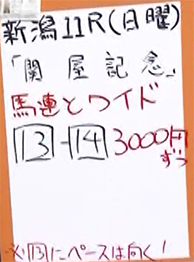 新潟11R(日曜)
「関屋記念」
馬連とワイド
13-14 3000円
ずつ
※13にペースは向く!